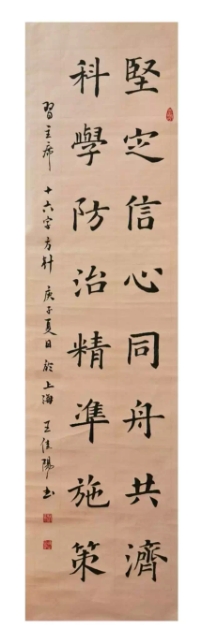 堅定信心同舟共濟
科學防治精準施策
習主席十六字方針 庚子夏日於上海 王佳陽書